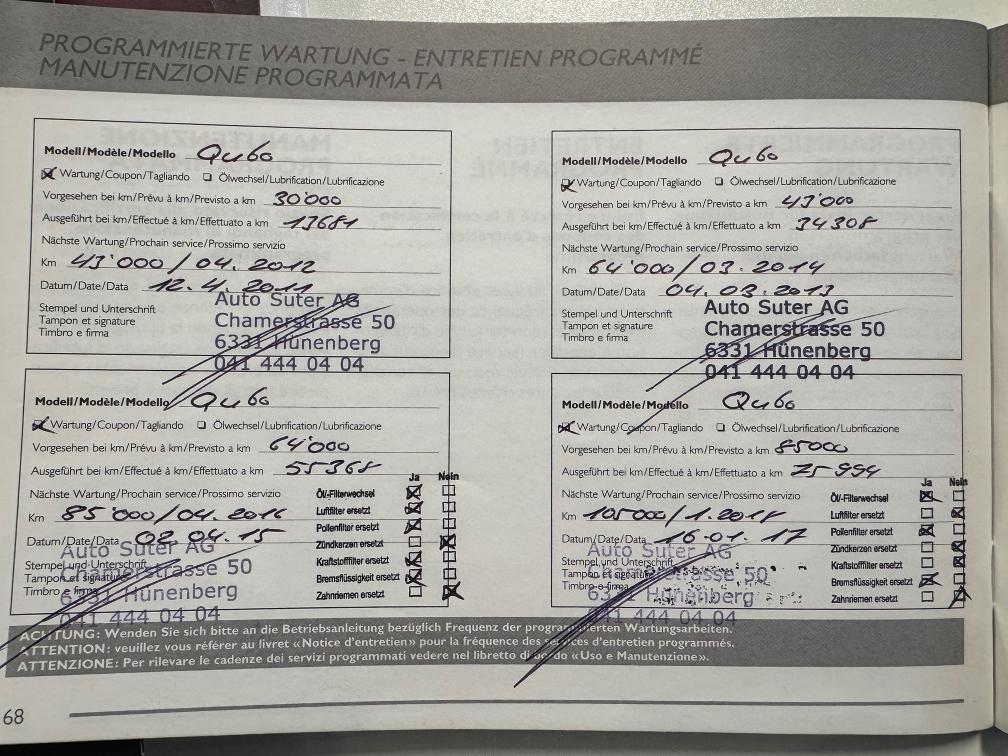 PROGRAMMIERTE WARTUNG - ENTRETIEN PROGRAMMÉ
MANUTENZIONE PROGRAMMATA
Modell/Modèle/Modello Qubo
Wartung/Coupon/Tagliando Ölwechsel/Lubrification/Lubrificazione
Vorgesehen bei km/Prévu à km/Previsto a km 30'000
Ausgeführt bei km/Effectué à km/Effettuato a km 13681
Nächste Wartung/Prochain service/Prossimo servizio
Km 43'000 / 04. 2012
Datum/Date/Data 12.4.2011
Stempel und Unterschrift
Tampon et signature
Timbro e firma
Auto Suter AG
Chamerstrasse 50
6331 Hünenberg
041 444 04 04
Modell/Modèle/Modello Qubo
Wartung/Coupon/Tagliando Ölwechsel/Lubrification/Lubrificazione
Vorgesehen bei km/Prévu à km/Previsto a km 43'000
Ausgeführt bei km/Effectué à km/Effettuato a km 34308
Nächste Wartung/Prochain service/Prossimo servizio
Km 64'000 / 03. 2014
Datum/Date/Data 04. 03. 2013
Stempel und Unterschrift
Tampon et signature
Timbro e firma
Auto Suter AG
Chamerstrasse 50
6331 Hünenberg
041 444 04 04
Modell/Modèle/Modello Qubo
Wartung/Coupon/Tagliando Ölwechsel/Lubrification/Lubrificazione
Vorgesehen bei km/Prévu à km/Previsto a km 64'000
Ausgeführt bei km/Effectué à km/Effettuato a km 55368
Nächste Wartung/Prochain service/Prossimo servizio
Km 85'000 / 04. 2016
Datum/Date/Data 02.04.15
Stempel und Unterschrift
Tampon et signature
Timbro e firma
Auto Suter AG
Chamerstrasse 50
6331 Hünenberg
041 444 04 04
Ja Nein
Öl/-Filterwechsel
Luftfilter ersetzt
Pollenfilter ersetzt
Zündkerzen ersetzt
Kraftstofffilter ersetzt
Bremsflüssigkeit ersetzt
Zahnriemen ersetzt
Modell/Modèle/Modello Qubo
Wartung/Coupon/Tagliando Ölwechsel/Lubrification/Lubrificazione
Vorgesehen bei km/Prévu à km/Previsto a km 85000
Ausgeführt bei km/Effectué à km/Effettuato a km 75994
Nächste Wartung/Prochain service/Prossimo servizio
Km 105000 / 1.2018
Datum/Date/Data 16.01.17
Stempel und Unterschrift
Tampon et signature
Timbro e firma
Auto Suter AG
Chamerstrasse 50
6331 Hünenberg
041 444 04 04
Ja Nein
Öl/-Filterwechsel
Luftfilter ersetzt
Pollenfilter ersetzt
Zündkerzen ersetzt
Kraftstofffilter ersetzt
Bremsflüssigkeit ersetzt
Zahnriemen ersetzt
ACHTUNG: Wenden Sie sich bitte an die Betriebsanleitung bezüglich Frequenz der programmierten Wartungsarbeiten.
ATTENTION: veuillez vous référer au livret «Notice d'entretien» pour la fréquence des services d'entretien programmés.
ATTENZIONE: Per rilevare le cadenze dei servizi programmati vedere nel libretto di bordo «Uso e Manutenzione».
68